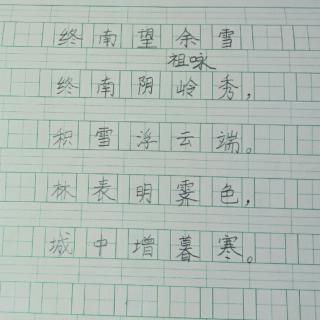 终南望余雪
祖咏
终南阴岭秀，
积雪浮云端。
林表明霁色，
城中增暮寒。